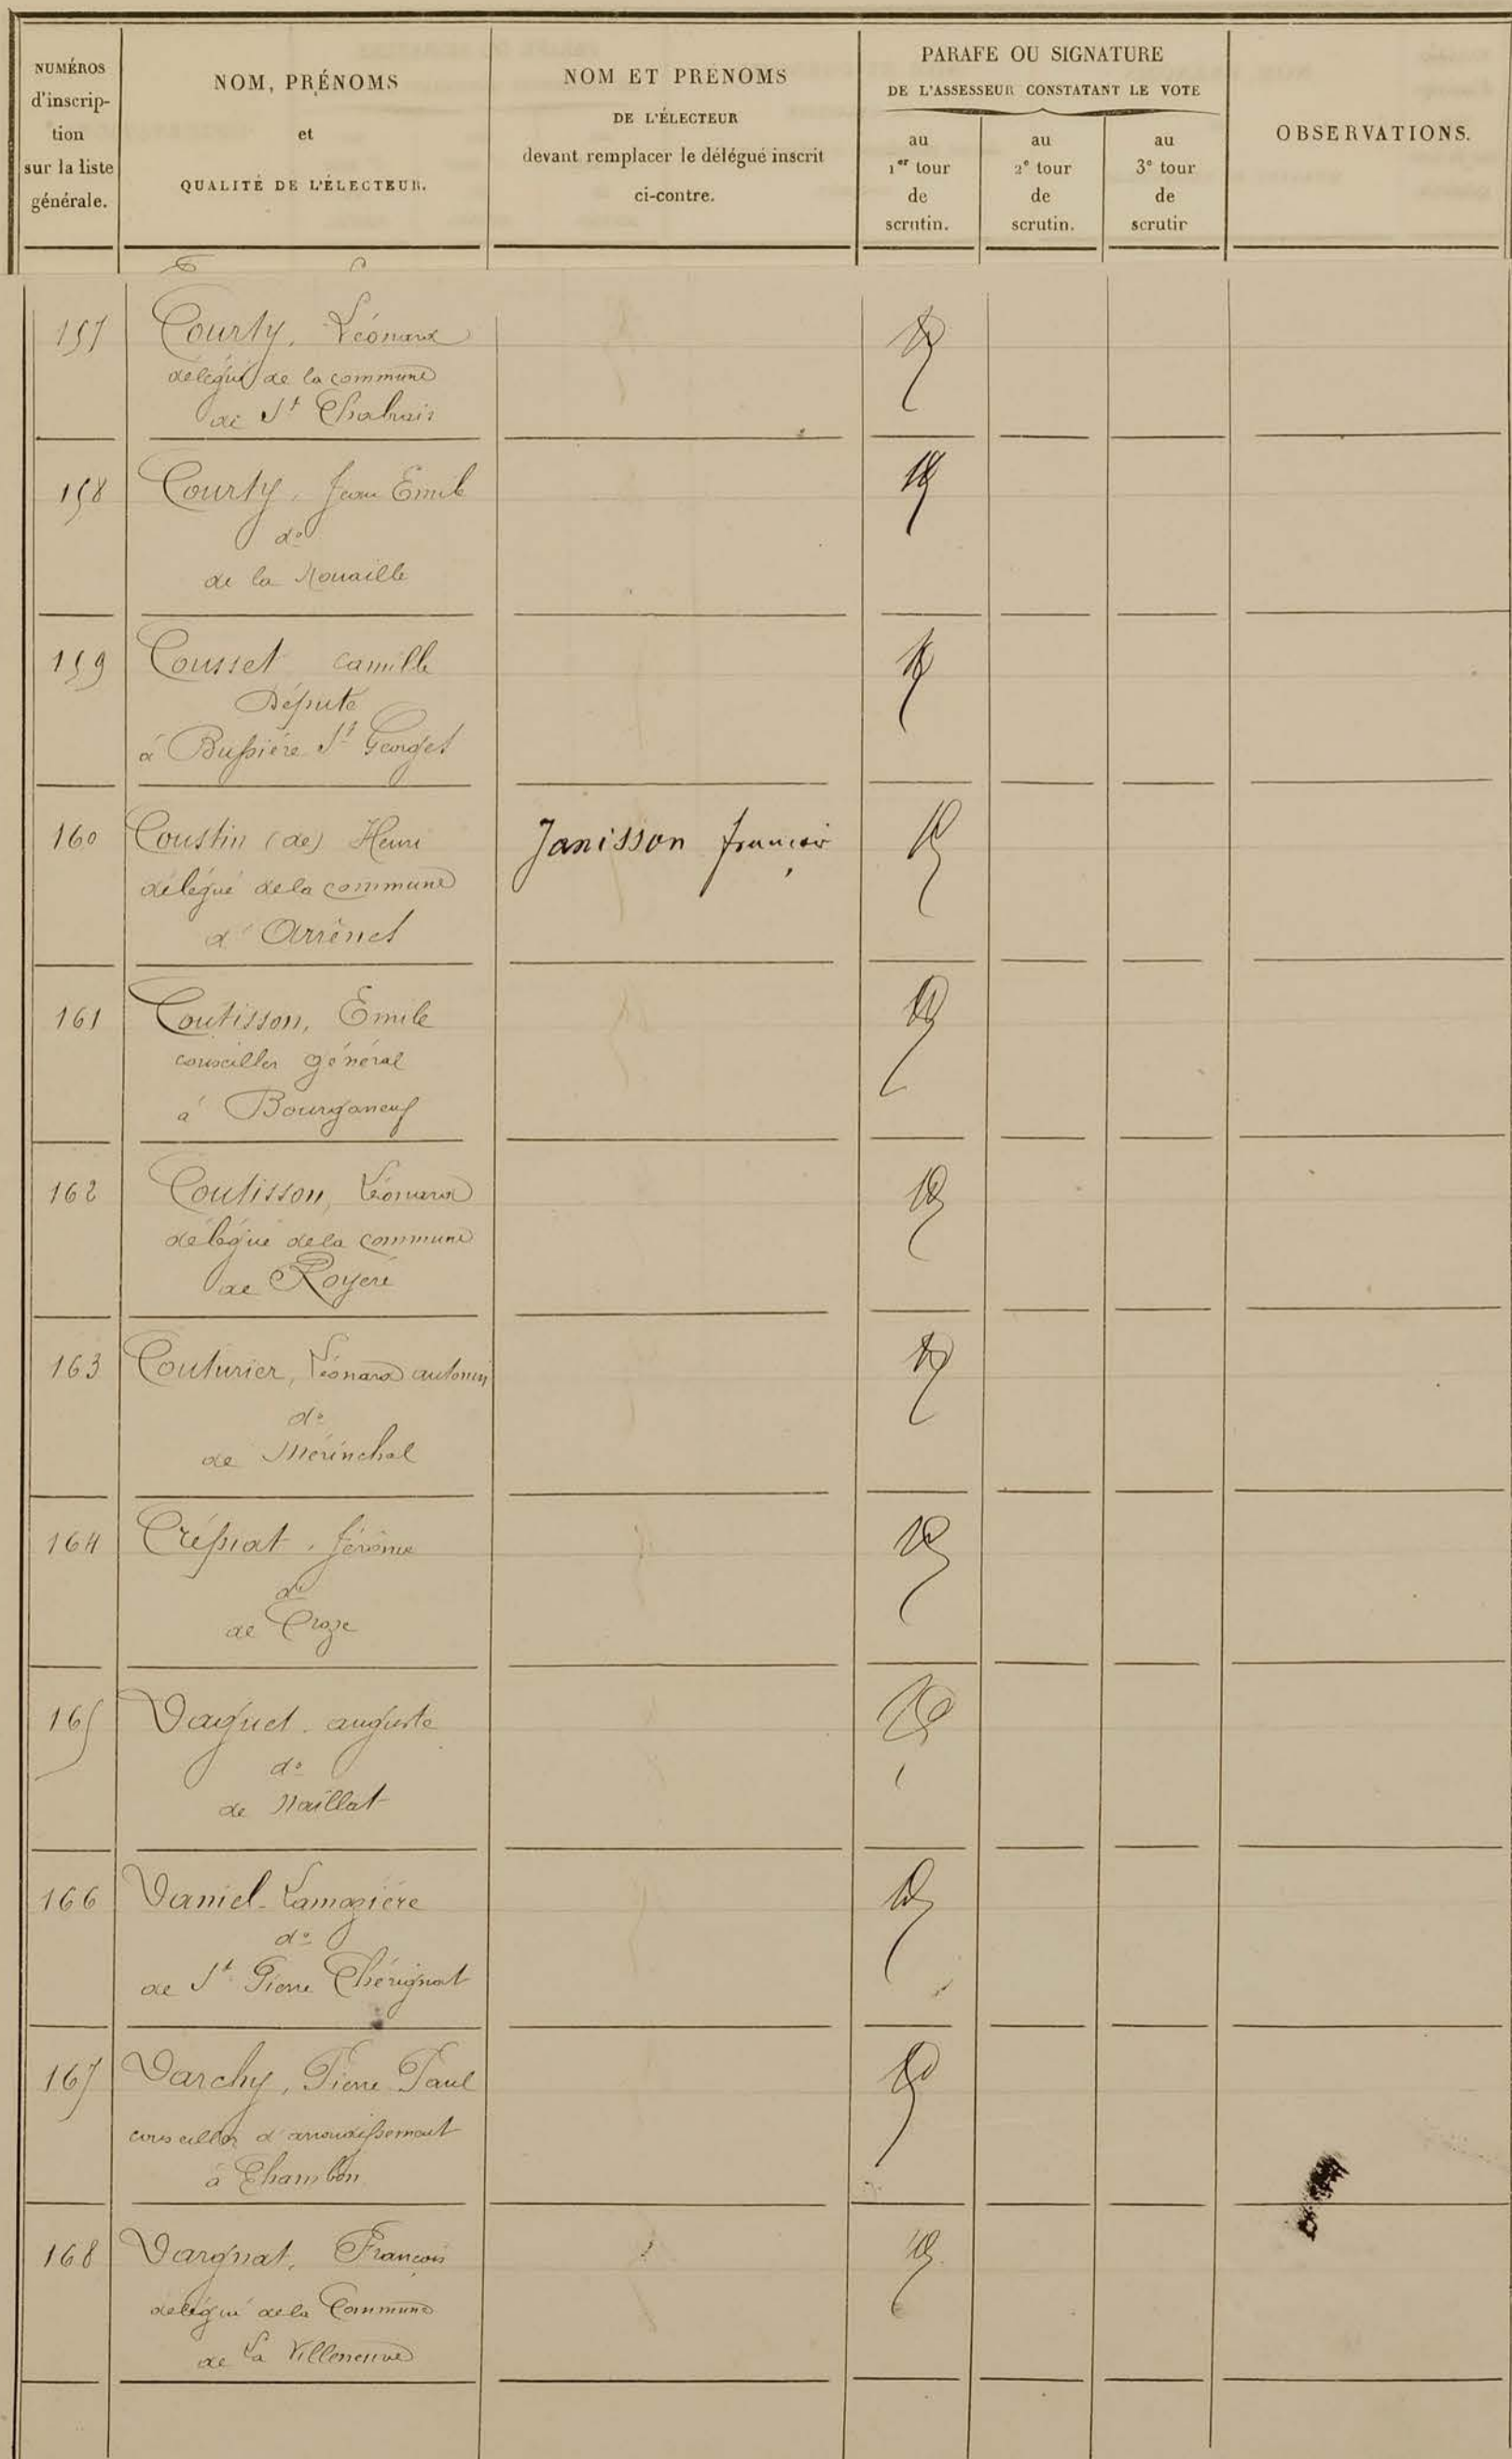 NUMÉROS
d'inscrip-
tion
sur la liste
générale.
NOM, PRÉNOMS
et
QUALITÉ DE L'ÉLECTEUR.
NOM ET PRÉNOMS
DE L'ÉLECTEUR
devant remplacer le délégué inscrit
ci-contre.
PARAFE OU SIGNATURE
DE L'ASSESSEUR CONSTATANT LE VOTE
au
1er tour
de
scrutin.
au
2e tour
de
scrutin.
au
3e tour
de
scrutin
OBSERVATIONS.
157 Courty, Léonard
délégué de la commune
de St Chabrais
158 Courty, Jean Emile
do
de la Nouaille
159 Cousset Camille
Député
à Bussière St Georges
160 Coustin (de) Henri Janisson françois
délégué de la commune
d'Arrènes
161 Coutisson, Emile
conseiller général
à Bourganeuf
162 Coutisson, Léonard
délégué de la commune
de Royère
163 Couturier, Léonard antonin
do
de Mérinchal
164 Crépiat, Jérôme
do
de Croze
165 Daguet, auguste
do
de Naillat
166 Daniel-Lamazière
do
de St Pierre Chérignat
167 Darchy, Pierre Paul
conseiller d'arrondissement
à Chambon
168 Dargnat, François
délégué de la Commune
de La Villeneuve